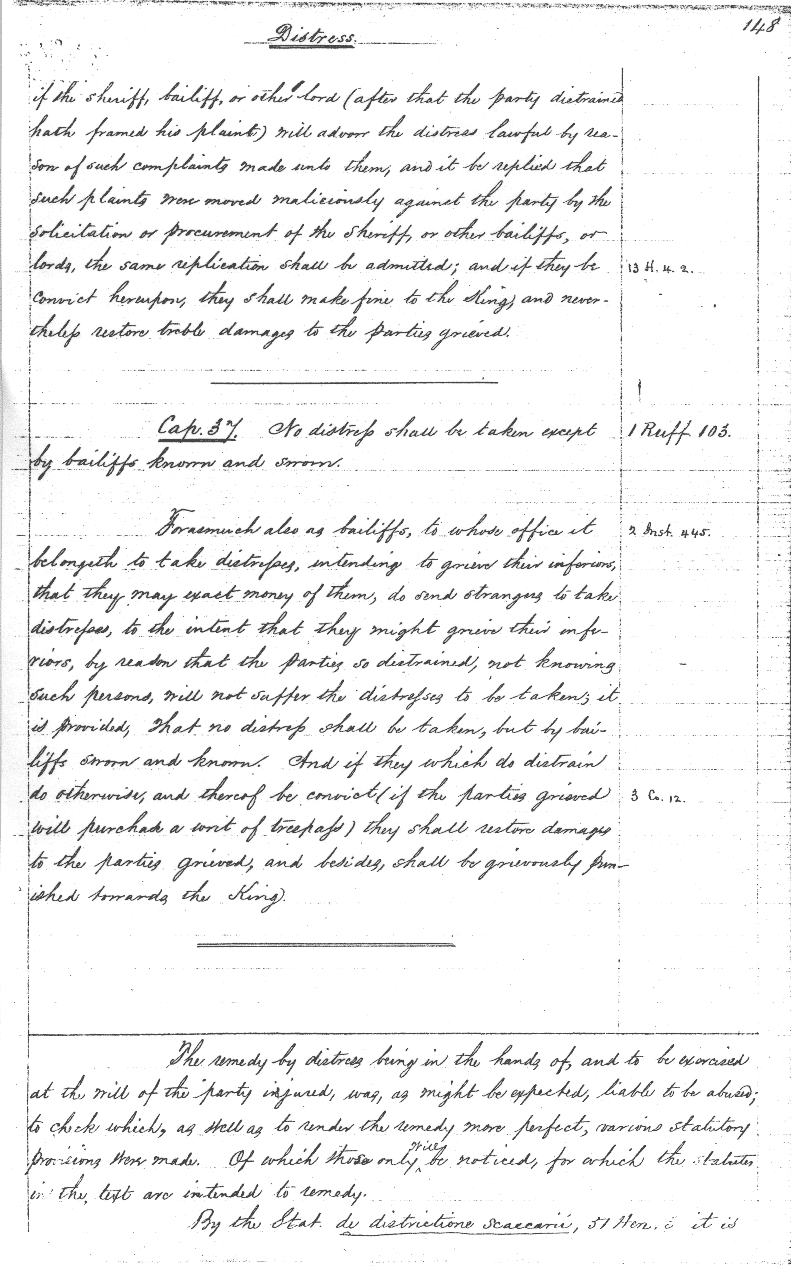 148
Distress.
if the sheriff, bailiff, or other lord (after that the party distrained
hath framed his plaint) will advow the distress lawful by rea-
son of such complaints made unto them, and it be replied that
such plaints were moved maliciously against the party by the
solicitation or procurement of the sheriff, or other bailiffs, or
lords, the same replication shall be admitted; and if they be
13 H. 4. 2.
convict hereupon, they shall make fine to the King, and never-
theless restore treble damages to the parties grieved.
Cap. 37. No distress shall be taken except
1 Ruff 103.
by bailiffs known and sworn.
Forasmuch also as bailiffs, to whose office it
2 Inst. 445.
belongeth to take distresses, intending to grieve their inferiors,
that they may exact money of them, do send strangers to take
distresses, to the intent that they might grieve their infe-
riors, by reason that the parties so distrained, not knowing
such persons, will not suffer the distresses to be taken; it
is provided, That no distress shall be taken, but by bai-
liffs sworn and known. And if they which do distrain
do otherwise, and thereof be convict (if the parties grieved
3 Co. 12.
will purchase a writ of trespass) they shall restore damages
to the parties grieved, and besides, shall be grievously pun-
ished towards the King.
The remedy by distress being in the hands of, and to be exercised
at the will of the party injured, was, as might be expected, liable to be abused;
to check which, as well as to render the remedy more perfect, various statutory
provisions were made. Of which those only will be noticed, for which the statutes
in the text are intended to remedy.
By the Stat. de districtione scaccarii, 51 Hen. it is